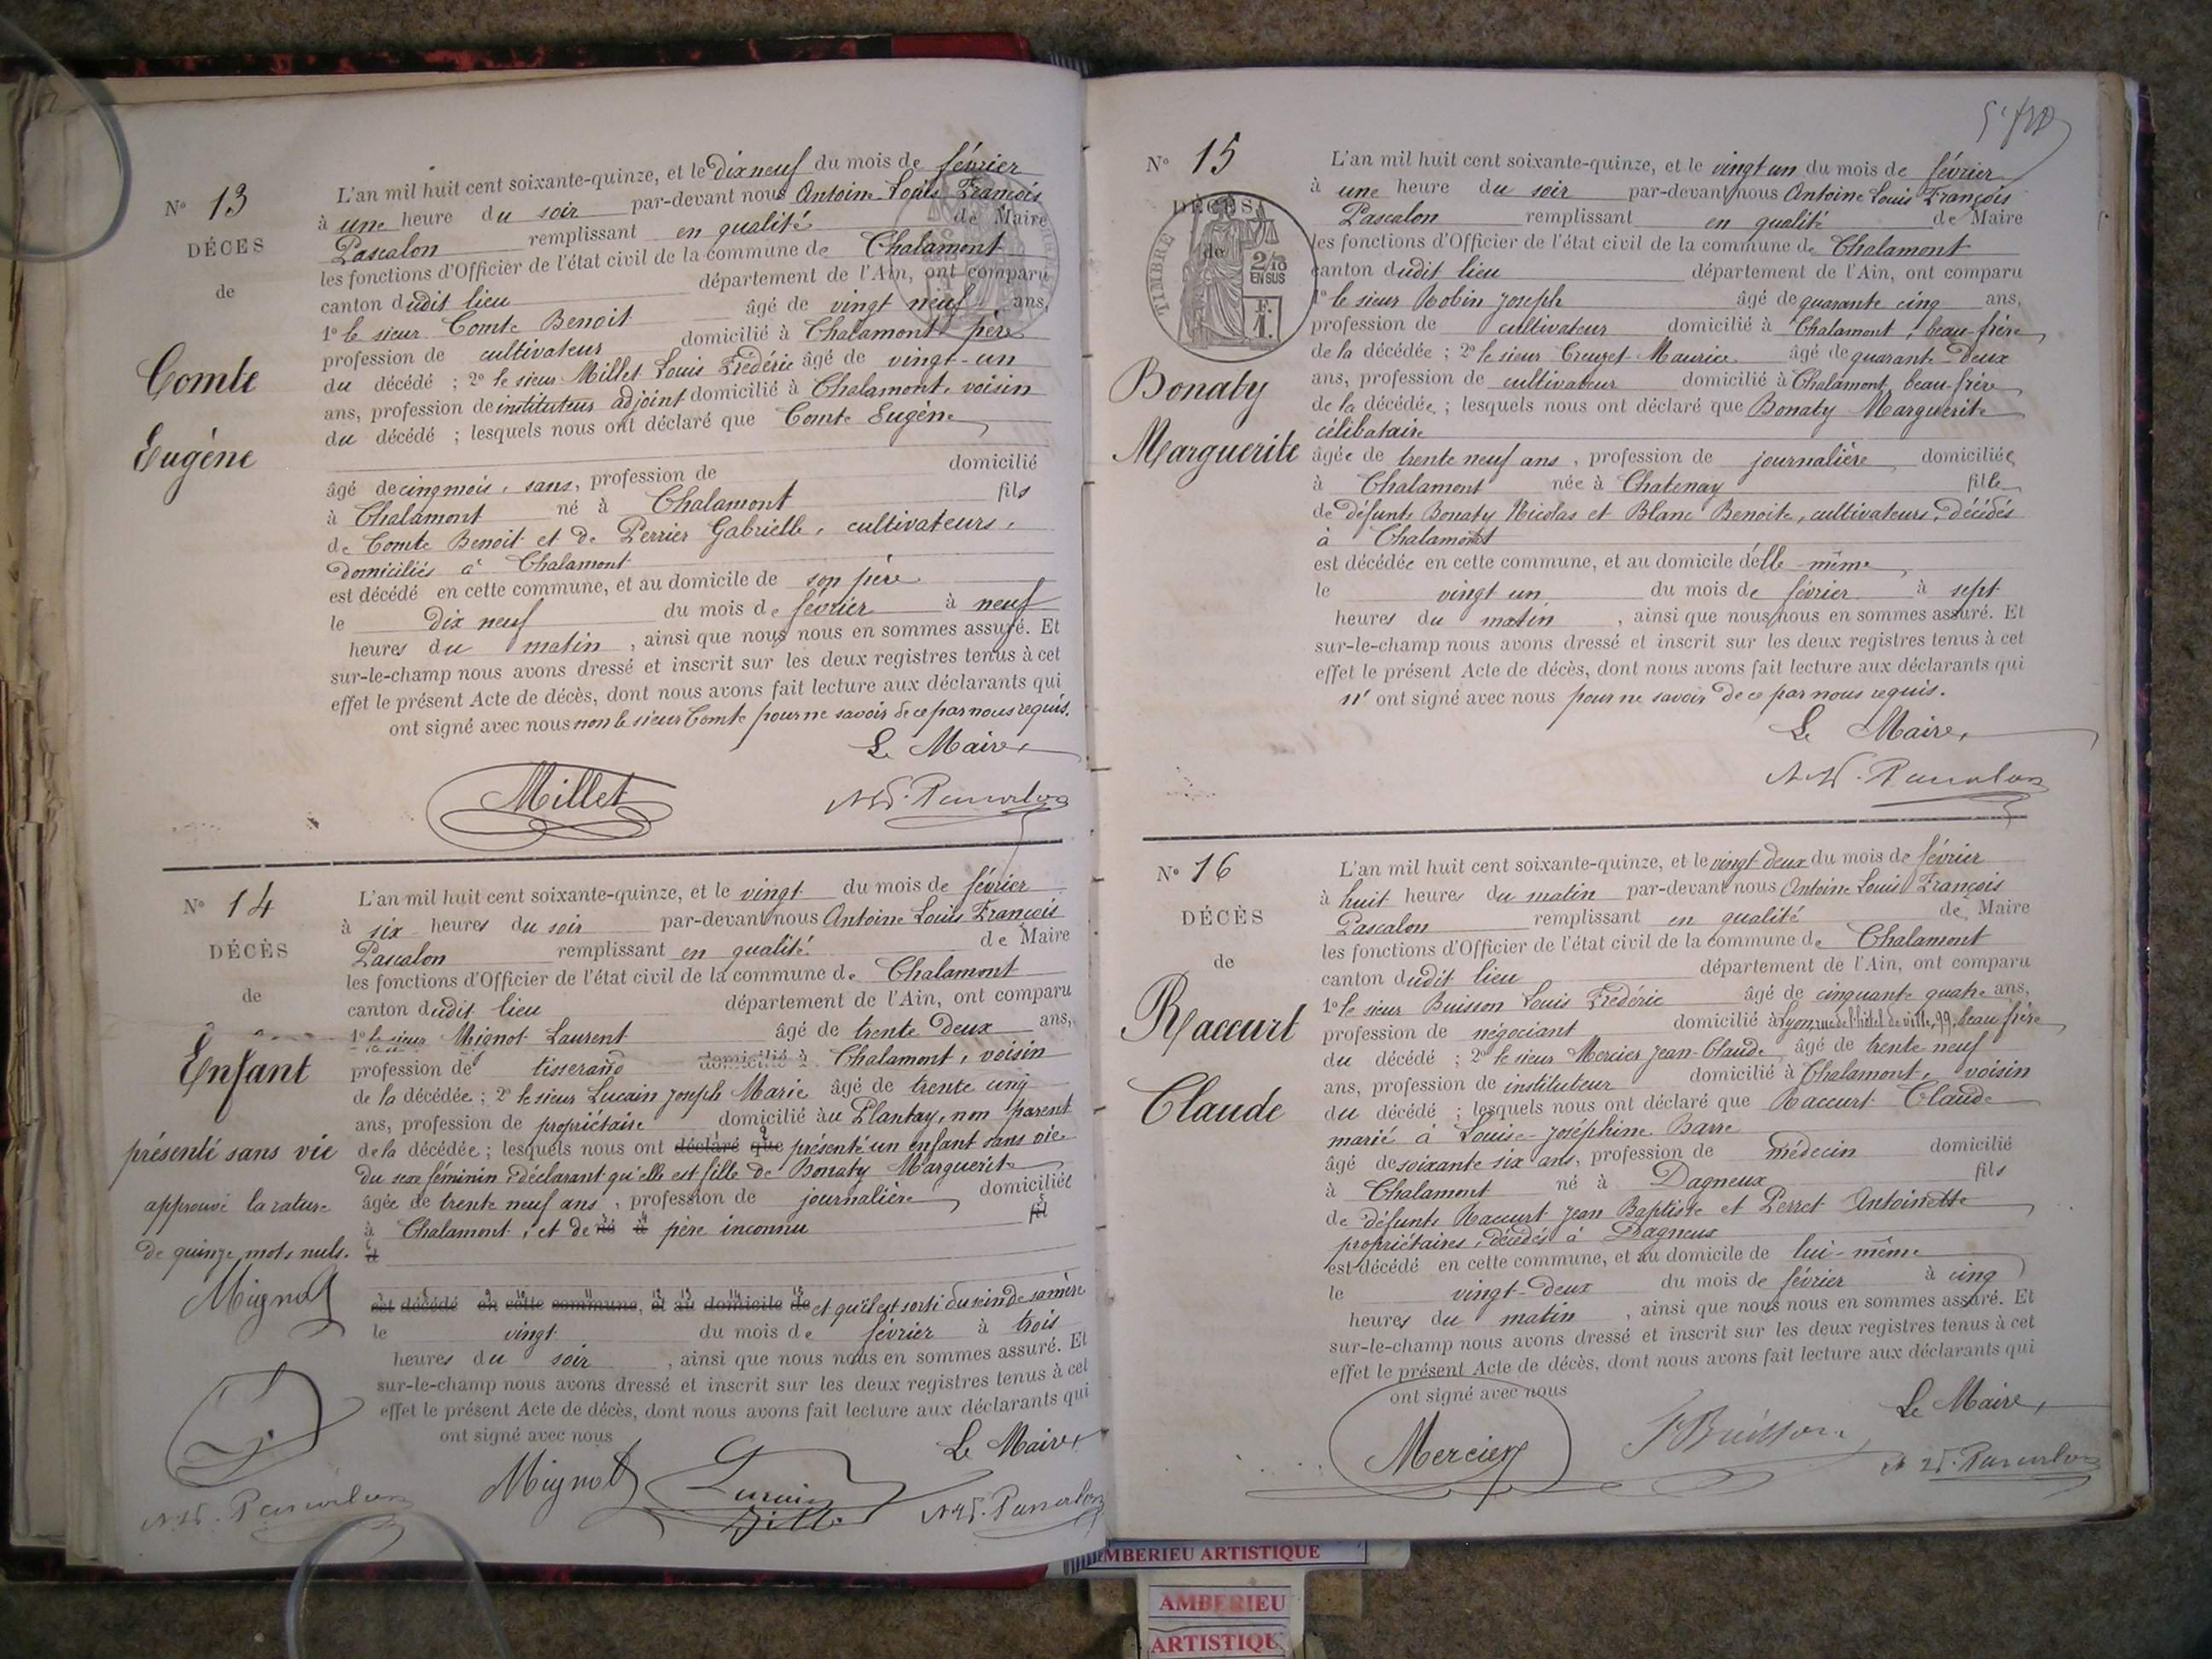 N° 13
DÉCES
de
Comte
Eugène
L'an mil huit cent soixante-quinze, et le dix neuf du mois de février
à une heure du soir par-devant nous Antoine Louis François
Pascalon remplissant en qualité de Maire
les fonctions d'Officier de l'état civil de la commune de Chalamont
canton dudit lieu département de l'Ain, ont comparu
1° le sieur Comte Benoit âgé de vingt neuf ans,
profession de cultivateur domicilié à Chalamont, père
du décédé ; 2° le sieur Millet Louis Frédéric âgé de vingt-un
ans, profession de instituteur adjoint domicilié à Chalamont, voisin
du décédé ; lesquels nous ont déclaré que Comte Eugène
âgé de cinq mois, sans, profession de domicilié
à Chalamont né à Chalamont fils
de Comte Benoit et de Perrier Gabrielle, cultivateurs,
domiciliés à Chalamont
est décédé en cette commune, et au domicile de son père
le dix neuf du mois de février à neuf
heures du matin, ainsi que nous nous en sommes assuré. Et
sur-le-champ nous avons dressé et inscrit sur les deux registres tenus à cet
effet le présent Acte de décès, dont nous avons fait lecture aux déclarants qui
ont signé avec nous non le sieur Comte pour ne savoir de ce par nous requis.
Le Maire,
Millet
Pascalon
N° 14
DÉCÈS
de
Enfant
présenté sans vie
approuvé la rature
de quinze mots nuls.
Mignot
Pascalon
L'an mil huit cent soixante-quinze, et le vingt du mois de février
à six heures du soir par-devant nous Antoine Louis François
Pascalon remplissant en qualité de Maire
les fonctions d'Officier de l'état civil de la commune de Chalamont
canton dudit lieu département de l'Ain, ont comparu
1° le sieur Mignot Laurent âgé de trente deux ans,
profession de tisserand domicilié à Chalamont, voisin
de la décédée ; 2° le sieur Lucain Joseph Marie âgé de trente cinq
ans, profession de propriétaire domicilié au Plantay, non parent
de la décédée ; lesquels nous ont déclaré que présenté un enfant sans vie
du sexe féminin déclarant qu'elle est fille de Bonaty Marguerite
âgée de trente neuf ans, profession de journalière, domiciliée
à Chalamont, et de né à père inconnu fil
d
est décédé en cette commune, et au domicile de et qu'il est sorti du sein de sa mère
le vingt du mois de février à trois
heures du soir, ainsi que nous nous en sommes assuré. Et
sur-le-champ nous avons dressé et inscrit sur les deux registres tenus à cet
effet le présent Acte de décès, dont nous avons fait lecture aux déclarants qui
ont signé avec nous
Le Maire,
Mignot
Lucain
Pascalon
N° 15
DÉCÈS
de
TIMBRE
2/10
EN SUS
F.
1.
Bonaty
Marguerite
L'an mil huit cent soixante-quinze, et le vingt un du mois de février
à une heure du soir par-devant nous Antoine Louis François
Pascalon remplissant en qualité de Maire
les fonctions d'Officier de l'état civil de la commune de Chalamont
canton dudit lieu département de l'Ain, ont comparu
1° le sieur Robin Joseph âgé de quarante cinq ans,
profession de cultivateur domicilié à Chalamont, beau-frère
de la décédée ; 2° le sieur Creuzet Maurice âgé de quarante Deux
ans, profession de cultivateur domicilié à Chalamont, beau-frère
de la décédée ; lesquels nous ont déclaré que Bonaty Marguerite
célibataire
âgée de trente neuf ans, profession de journalière domiciliée
à Chalamont née à Chatenay fille
de défunts Bonaty Nicolas et Blanc Benoite, cultivateurs, décédés
à Chalamont
est décédée en cette commune, et au domicile d'elle-même,
le vingt un du mois de février à sept
heures du matin, ainsi que nous nous en sommes assuré. Et
sur-le-champ nous avons dressé et inscrit sur les deux registres tenus à cet
effet le présent Acte de décès, dont nous avons fait lecture aux déclarants qui
n'ont signé avec nous pour ne savoir de ce par nous requis.
Le Maire,
Pascalon
N° 16
DÉCÈS
de
Raccurt
Claude
L'an mil huit cent soixante-quinze, et le vingt deux du mois de février
à huit heures du matin par-devant nous Antoine Louis François
Pascalon remplissant en qualité de Maire
les fonctions d'Officier de l'état civil de la commune de Chalamont
canton dudit lieu département de l'Ain, ont comparu
1° le sieur Buisson Louis Frédéric âgé de cinquante quatre ans,
profession de négociant domicilié à Lyon, rue de l'hôtel de ville, 99, beau frère
du décédé ; 2° le sieur Mercier Jean-Claude âgé de trente neuf
ans, profession de instituteur domicilié à Chalamont, voisin
du décédé ; lesquels nous ont déclaré que Raccurt Claude
marié à Louise-Joséphine Barre
âgé de soixante six ans, profession de médecin domicilié
à Chalamont né à Dagneux fils
de défunts Raccurt Jean Baptiste et Perret Antoinette
propriétaires, décédés à Dagneux
est décédé en cette commune, et au domicile de lui-même
le vingt-deux du mois de février à cinq
heures du matin, ainsi que nous nous en sommes assuré. Et
sur-le-champ nous avons dressé et inscrit sur les deux registres tenus à cet
effet le présent Acte de décès, dont nous avons fait lecture aux déclarants qui
ont signé avec nous
Le Maire,
Mercier
Buisson
Pascalon
AMBERIEU ARTISTIQUE
AMBERIEU
ARTISTIQUE